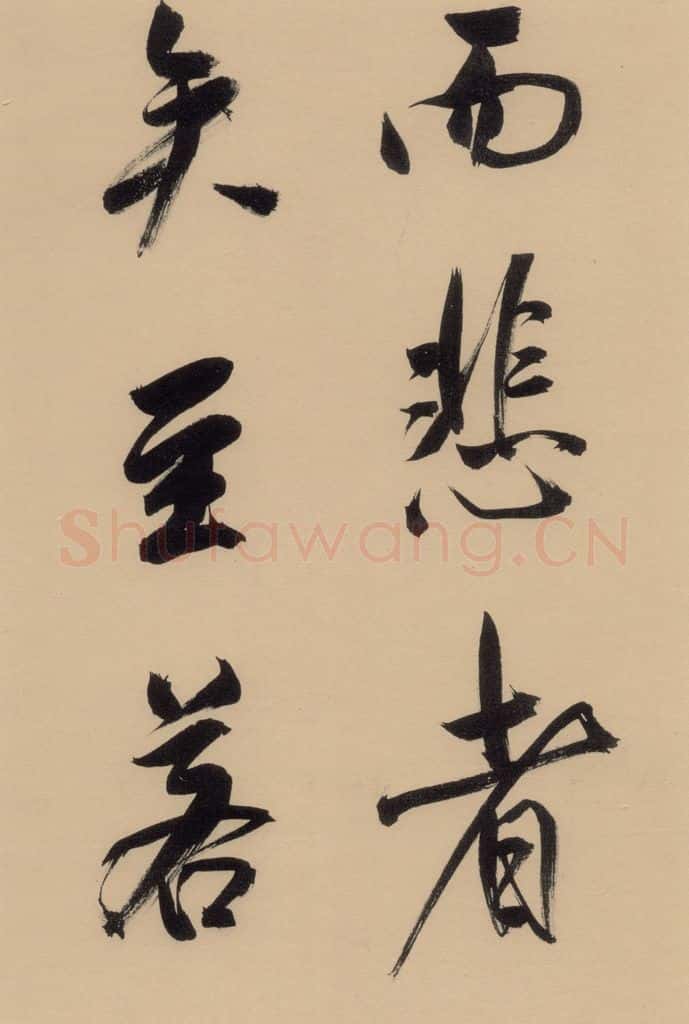 而悲者
矣至若
Shufawang.CN